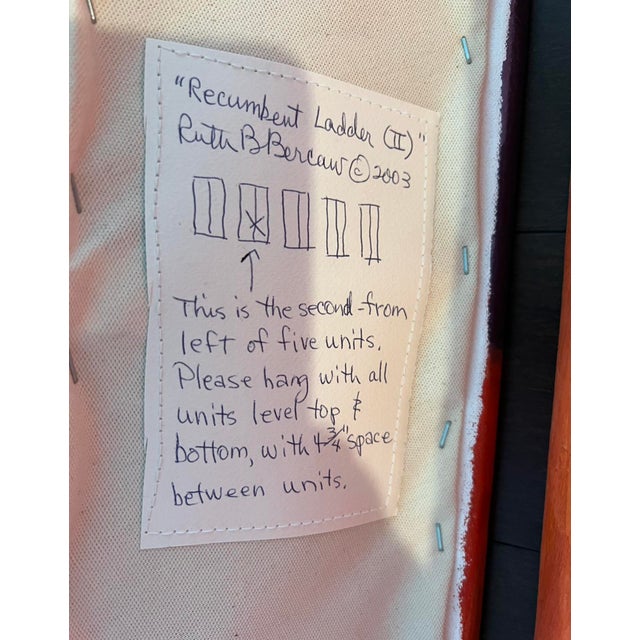 "Recumbent Ladder (II)"
Ruth B Bercaw © 2003
X
This is the second-from
left of five units.
Please hang with all
units level top &
bottom, with 4 3/4" space
between units.